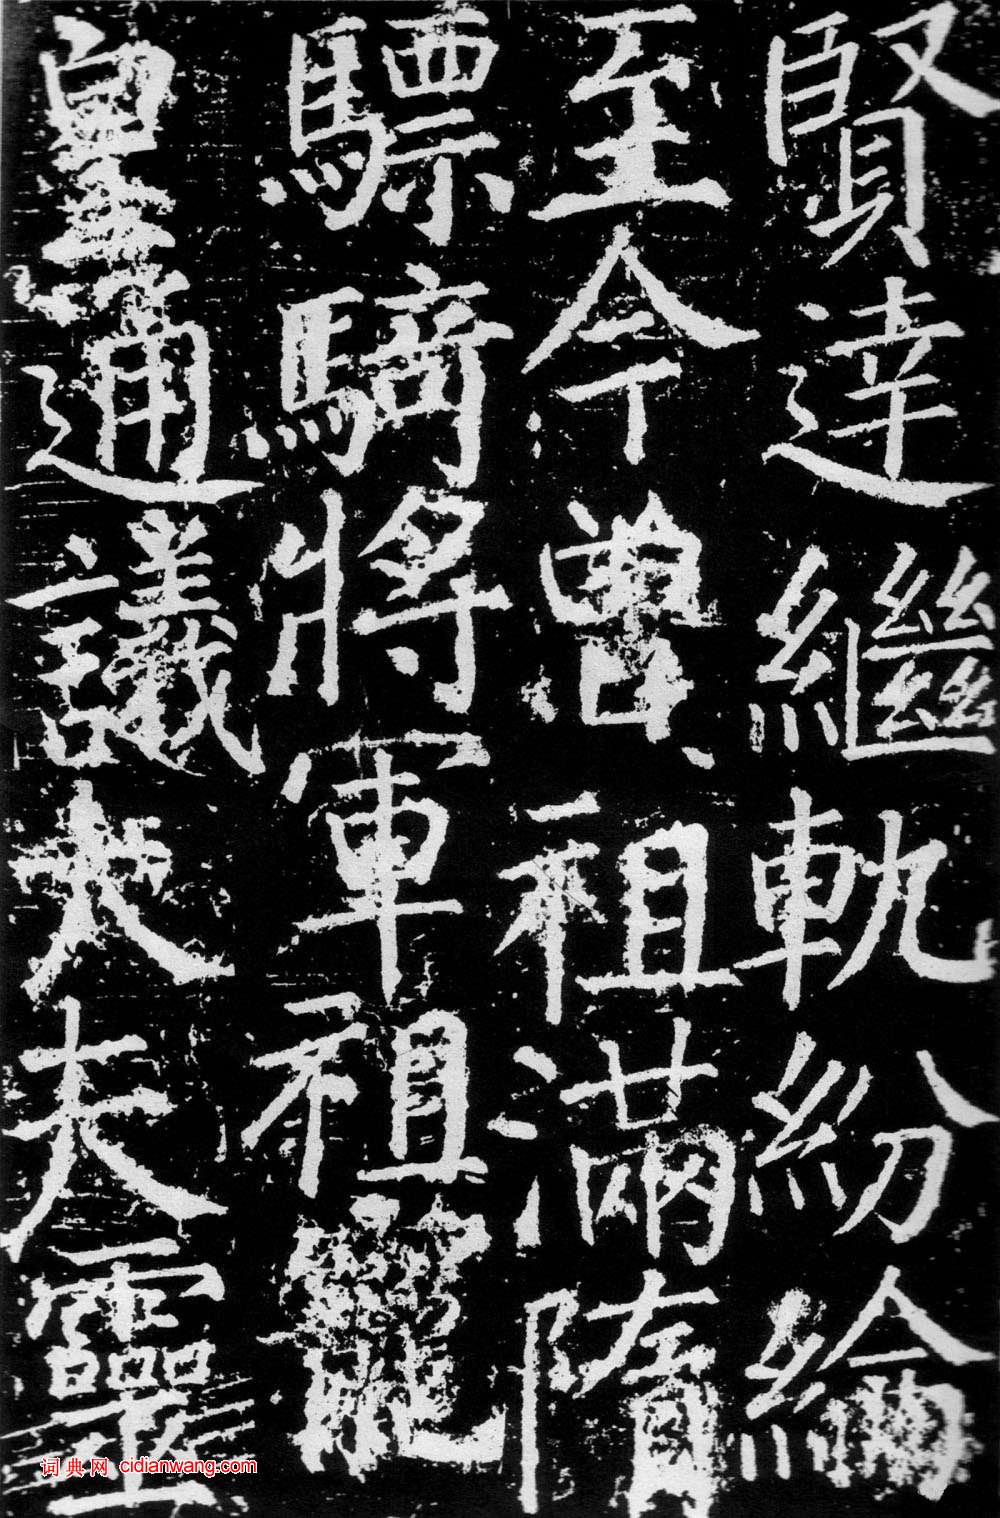 賢達繼軌紛綸
至今曾祖滿隋
驃騎將軍祖寵
皇通議大夫靈
词典网 cidianwang.com